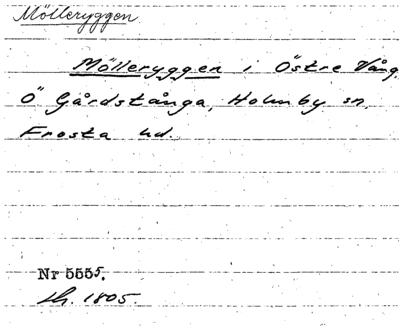 Mölleryggen
Mölleryggen i Östre Vång,
Ö Gårdstånga, Holmby sn,
Frosta hd.
Nr 5555.
Lh. 1805.